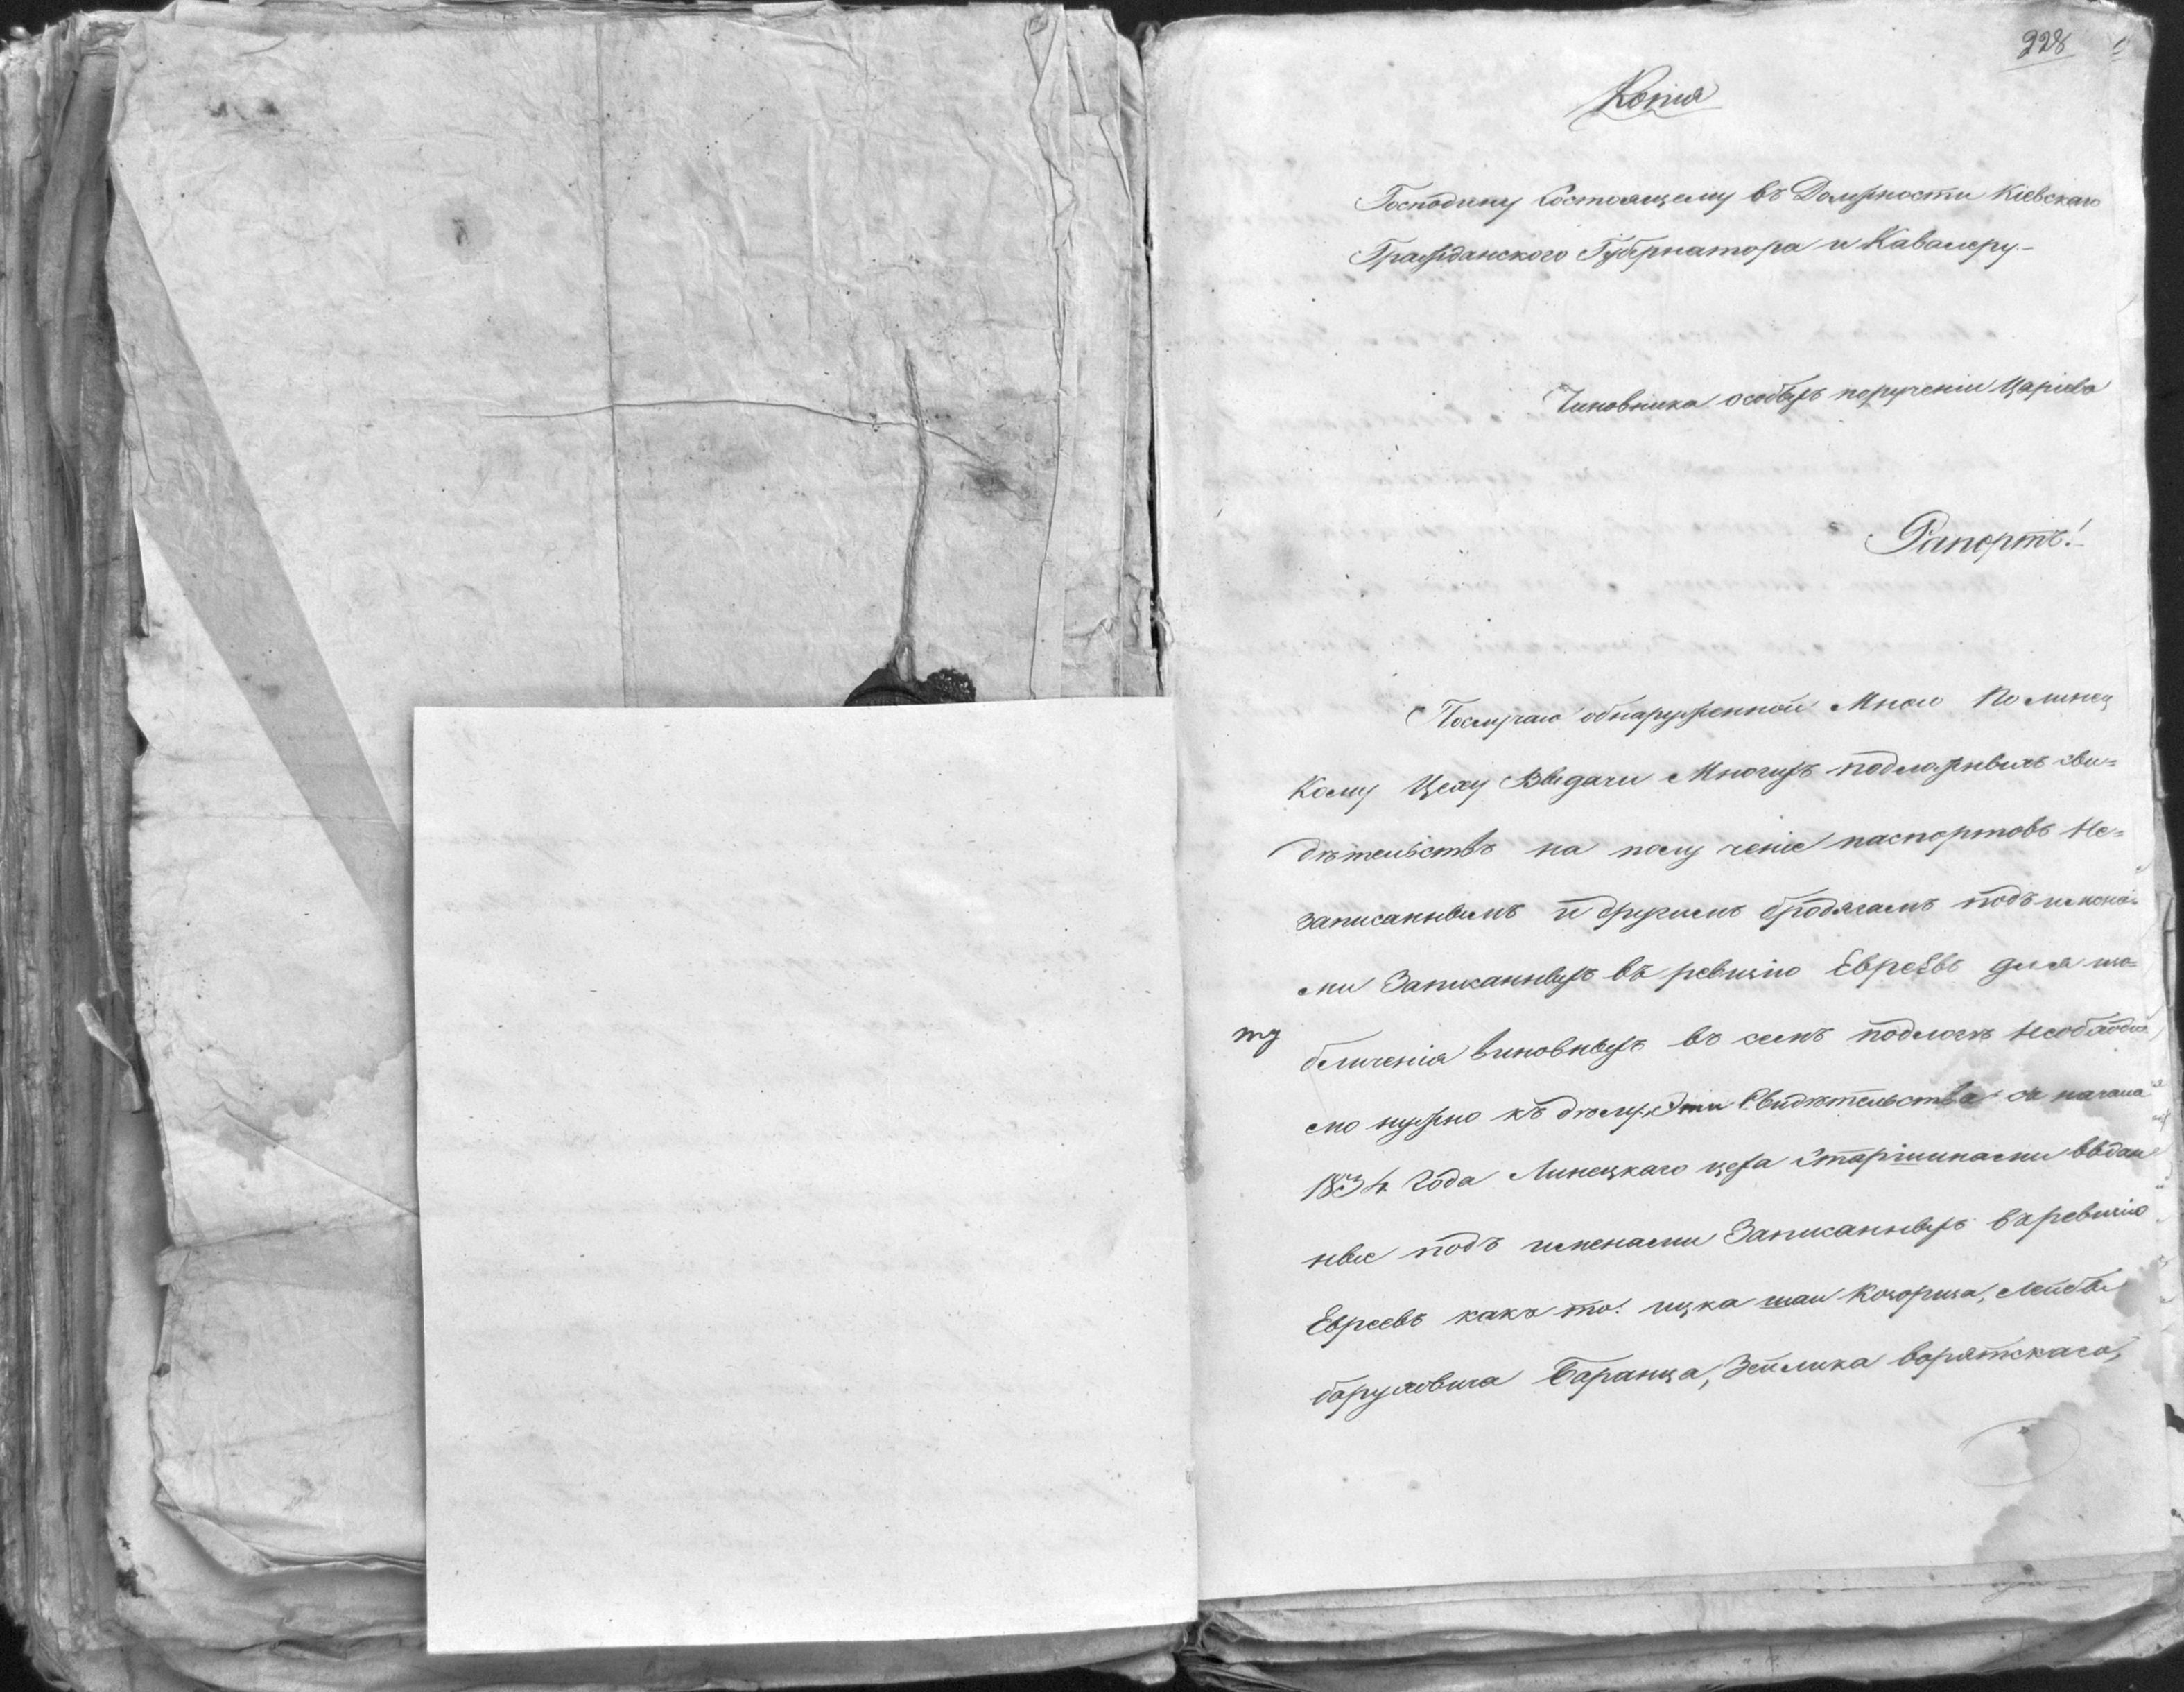 228
Копія
Господину Состоящему въ Должности Кіевскаго
Гражданского Губернатора и Кавалеру.-
Чиновника особыхъ порученіи
Рапортъ!
Послучаю обнаруженной Мною По Линец
Кому Цеху Выдачи Многихъ подложныхъ сви=
дѣтельствъ на полученіе паспортовъ Не=
записаннымъ и другимъ бродягамъ подъ имена
ми Записанныхъ въ ревизію Евреевъ для изо=
бличенія виновныхъ въ семъ подлогѣ необходи
мо нужно къ дѣлу Эти Свидѣтельства съ начала
1834 года Линецкаго цеха Старшинами выдан
ные подъ именами Записанныхъ въ ревизію
Евреевъ какъ то: ицка Лейбы
баруховича Баранца, Зейлика